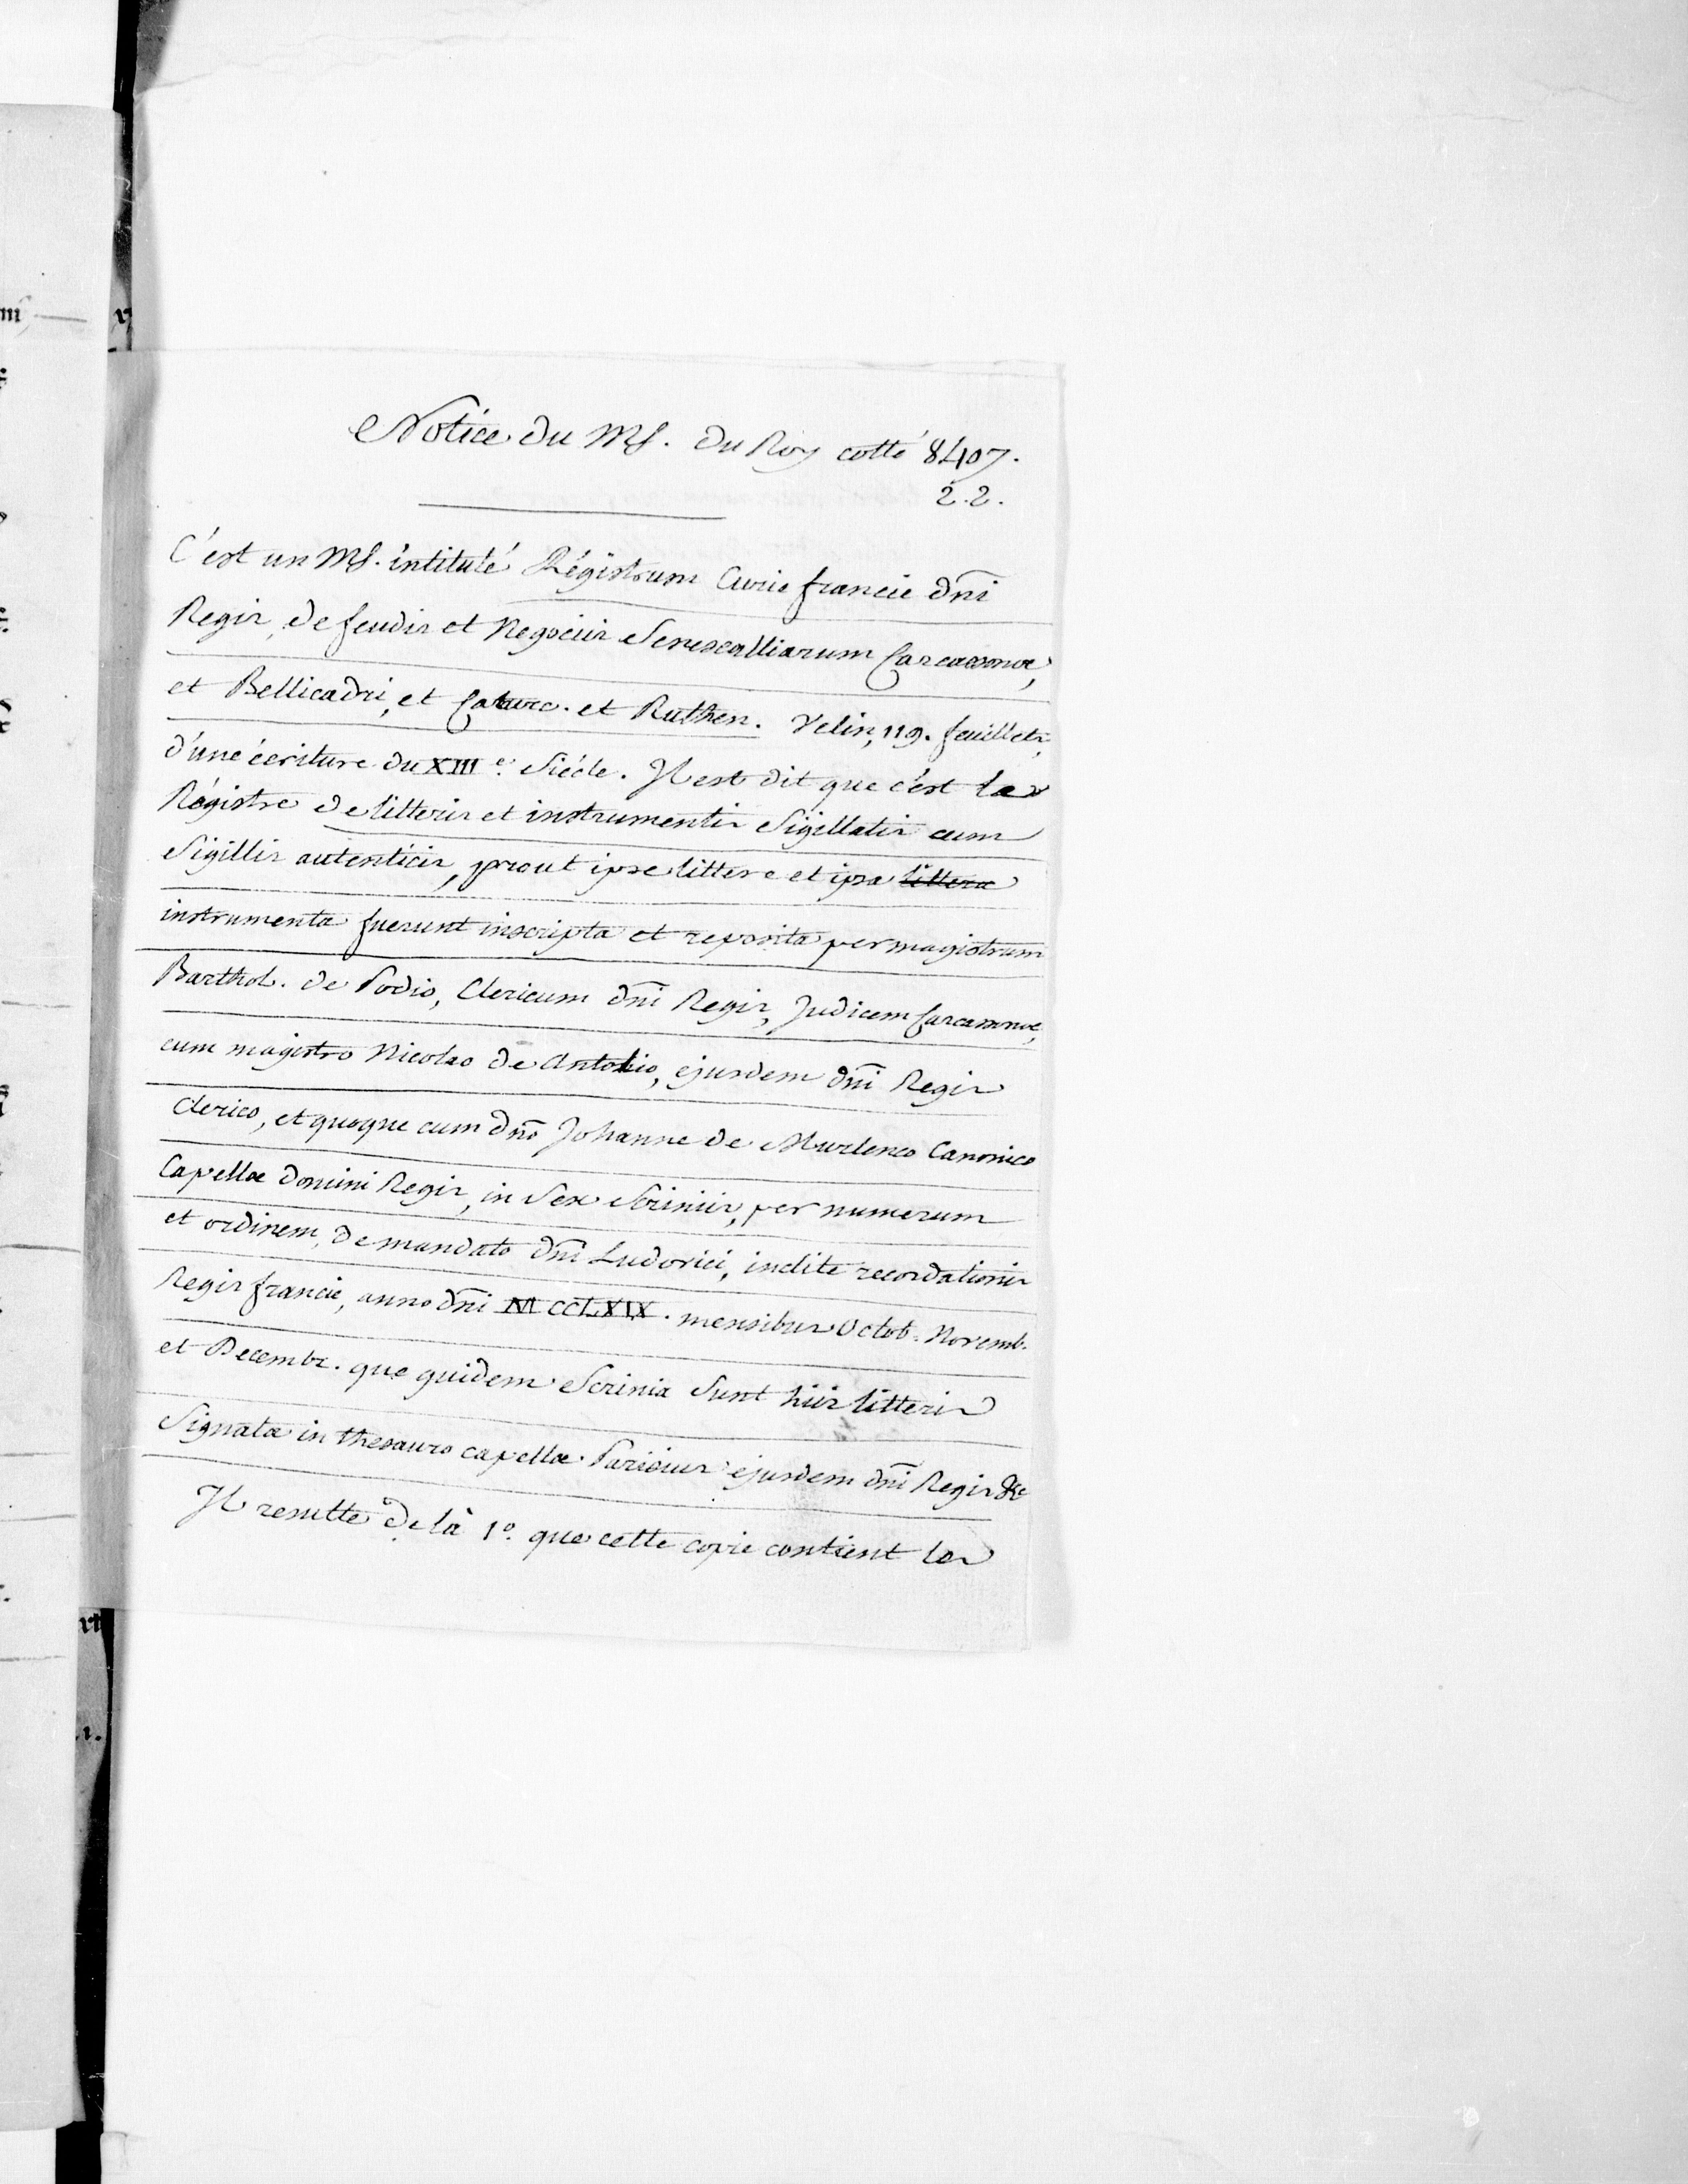 Notice du Ms. du Roy cotté 8407.
2.2.
C'est un Ms. intitulé Régistrum Curie francie dni
Regis, de feudis et Negociis Senescalliarum Carcassonæ,
et Bellicadri, et Caturc. et Ruthen. Velin, 119. feuillets,
d'une écriture du XIII e. Siécle. Il est dit que c'est le
Régistre de litteris et instrumentis Sigillatis cum
Sigillis autenticis, prout ipse littere et ipsa littera
instrumenta fuerunt inscripta et reposita per magistrum
Barthol. de Podio, Clericum dni Regis, Judicem Carcassonæ,
cum magistro Nicolao de Antolio, ejusdem dni Regis
Clerico, et quoque cum dno Johanne de Murlenco Canonico
Capellæ domini Regis, in Sex Scriniis, per numerum
et ordinem, de mandato dni Ludovici, inclite recordationis
Regis francie, anno dni M CCLXIX. mensibus Octob. Novemb.
et Decembr. que quidem Scrinia Sunt hiis litteris
Signata in thesauro capellæ Parisius ejusdem dni Regis &c
Il resulte de là 1o. que cette copie contient les